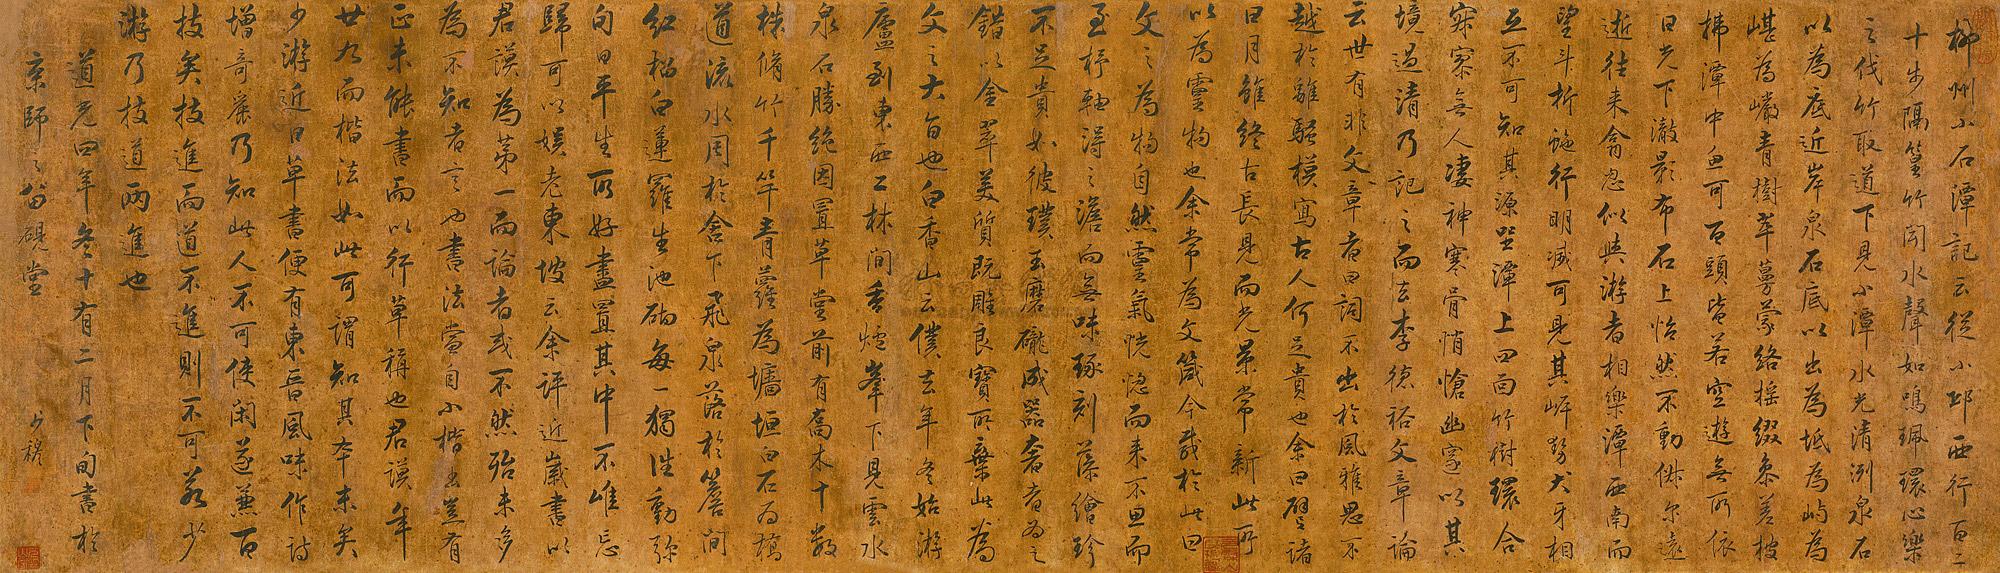 柳州小石潭記云從小邱西行百二
十步隔篁竹聞水聲如鳴珮環心樂
之伐竹取道下見小潭水光清洌泉石
以為底近岸泉石底以出為坻為嶼為
嵁為巖青樹萃蔓蒙絡搖綴參差披
拂潭中魚可百頭皆若空遊無所依
日光下澈影布石上怡然不動俶尔遠
逝往来翕忽似與游者相樂潭西南而
望斗折蛇行明滅可見其岸勢犬牙相
互不可知其源坐潭上四面竹樹環合
寂寥無人凄神寒骨悄愴幽邃以其
境過清乃記之而去李德裕文章論
云世有非文章者曰詞不出於風雅思不
越於離騷模寫古人何足貴也余曰譬諸
日月雖終古長見而光景常新此所
以為靈物也余常為文箴今載於此曰
文之為物自然靈氣恍惚而来不思而
至杼軸得之澹而無味琢刻藻繪珍
不足貴如彼璞玉磨礲成器奢者為之
錯以金翠美質既雕良寶所棄此為
文之大旨也白香山云僕去年冬始游
廬到東西二林間香爐峯下見雲水
泉石勝絶因置草堂前有喬木十數
株脩竹千竿青蘿為墻垣白石為橋
道流水周於舍下飛泉落於簷間
紅榴白蓮羅生池砌每一獨往動弥
旬日平生所好盡置其中不唯忘
歸可以娱老東坡云余評近歲書以
君謨為第一而論者或不然殆未易
為不知者言也書法當自小楷出豈有
正未能書而以行草稱也君謨年
廿九而楷法如此可謂知其本末矣
少游近日草書便有東晉風味作詩
增奇麗乃知此人不可使閑遂兼百
技矣技進而道不進則不可若少
游乃技道兩進也
道光四年冬十有二月下旬書於
京師之留硯堂
少穆